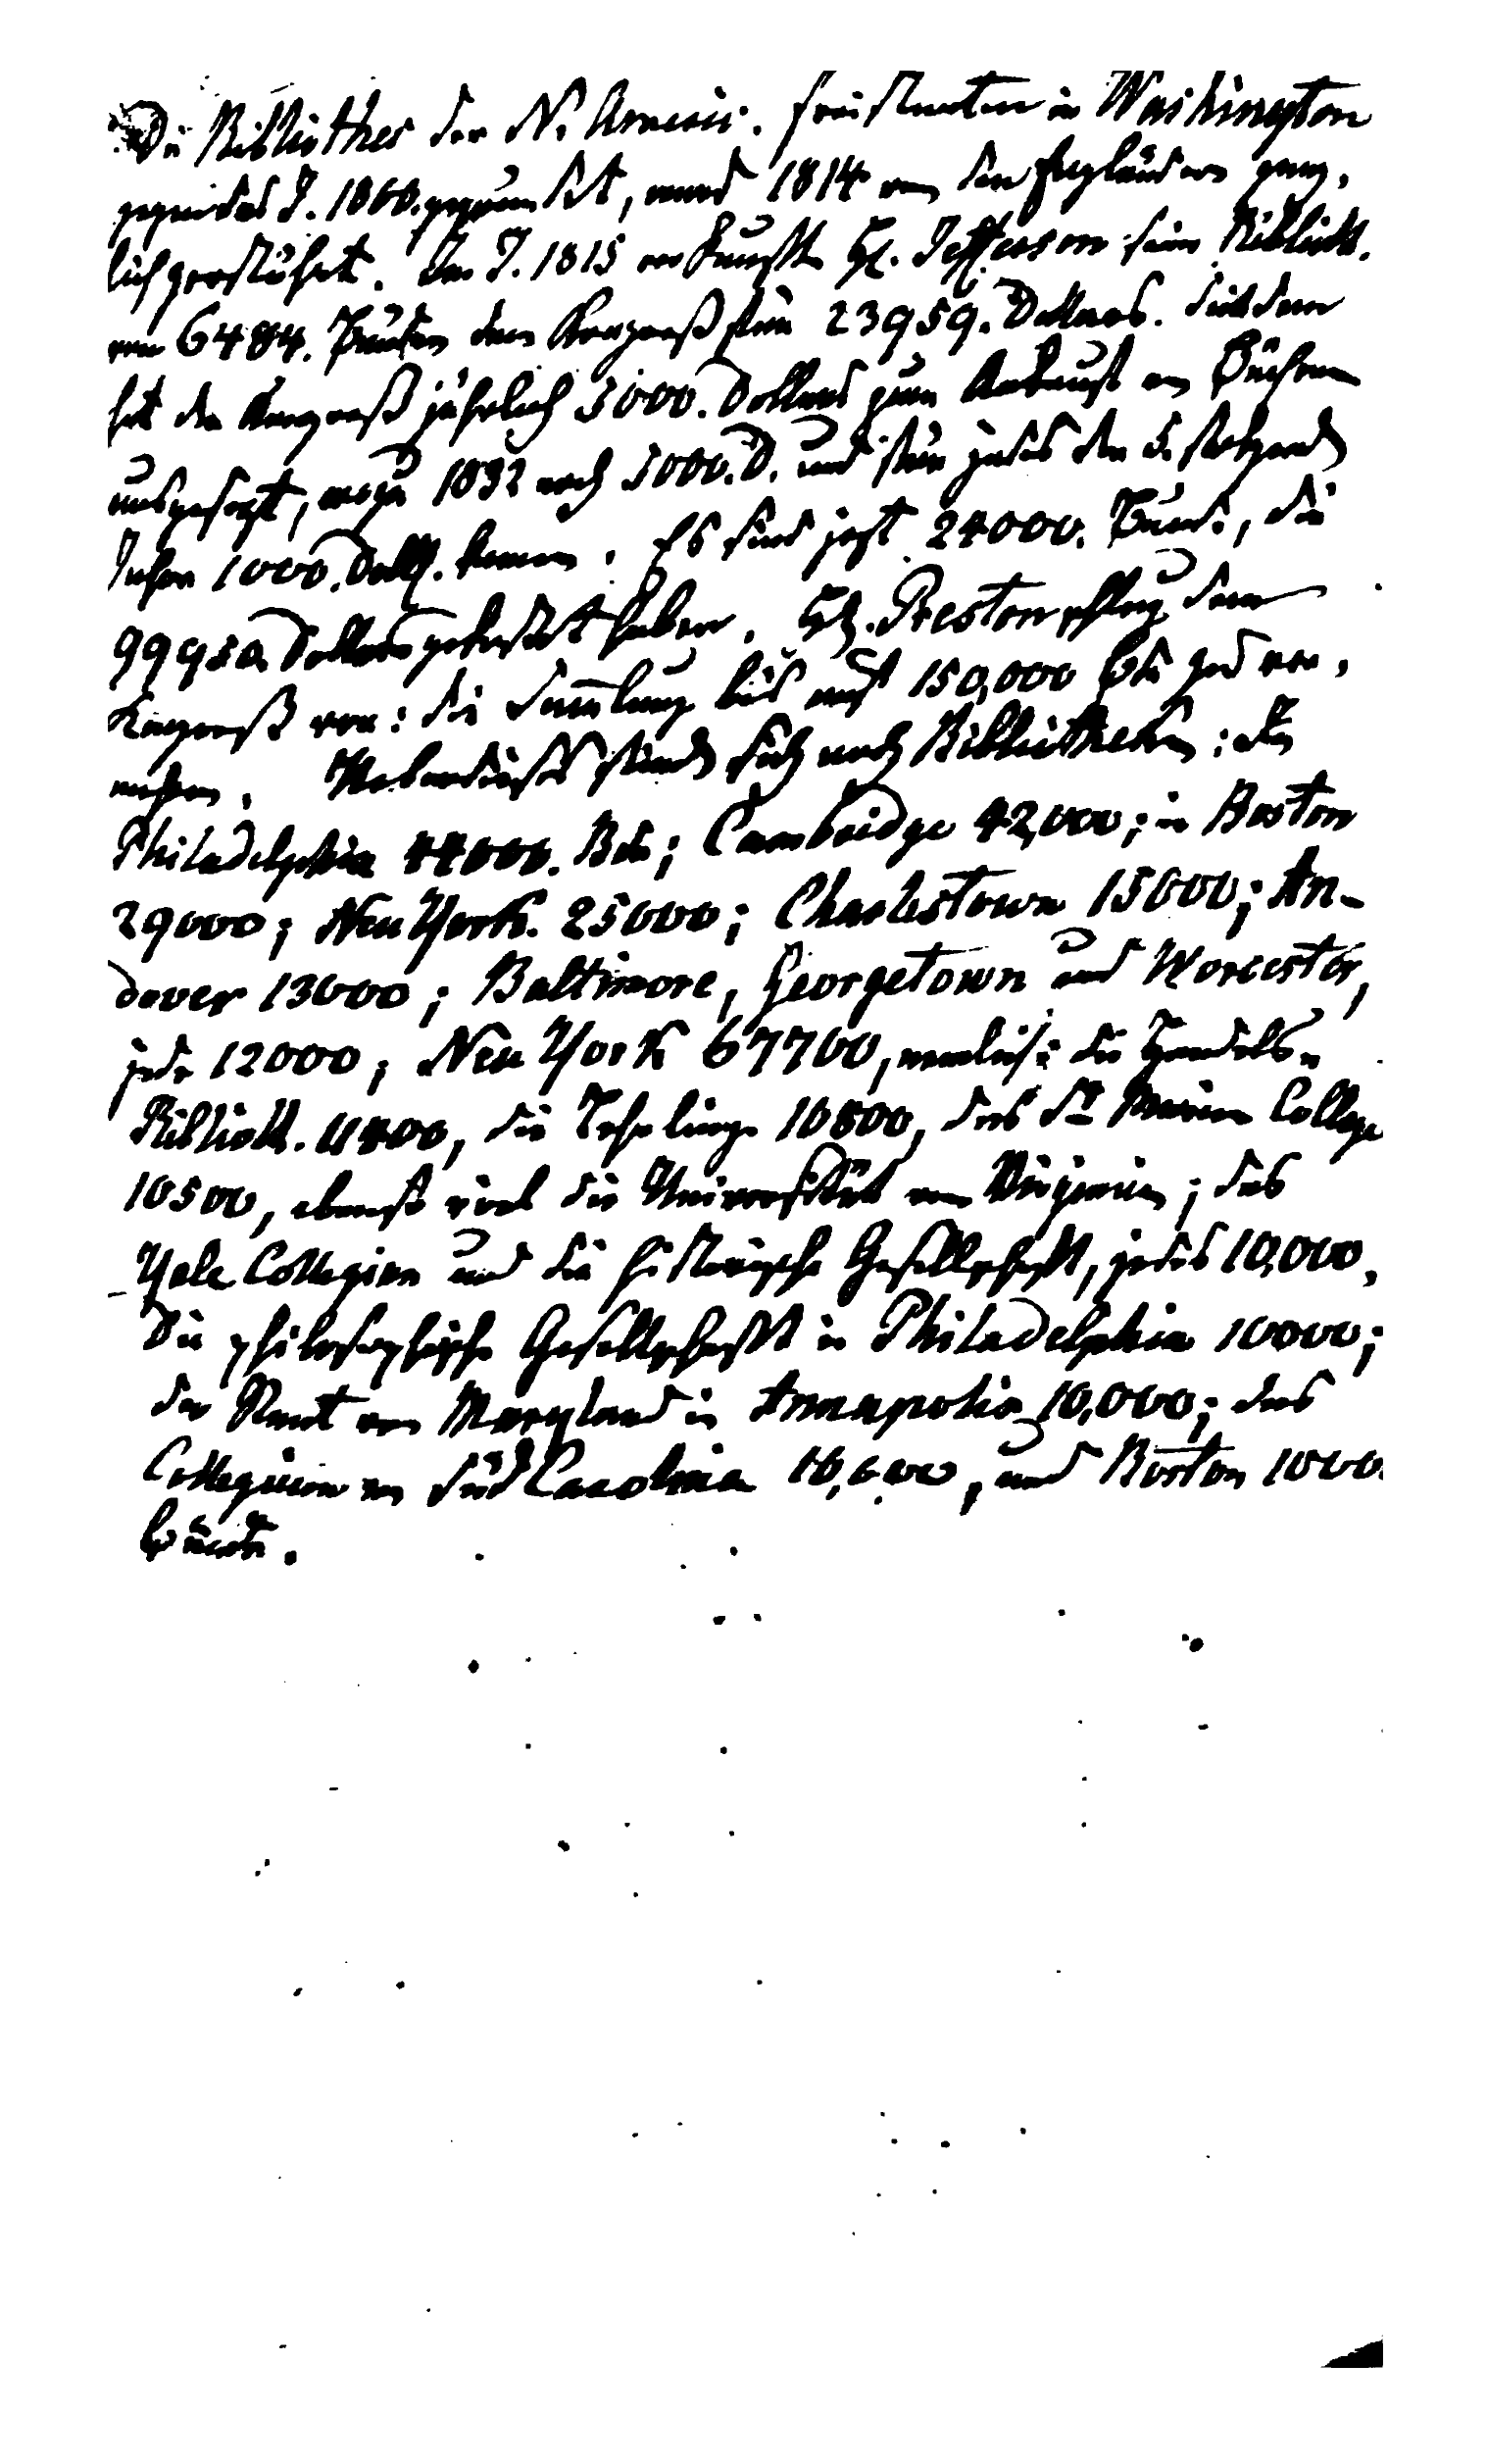 Die Bibliothek der N. Americ. Freistaaten in Washington
gegen das J. 1800. gegründet, ward 1814 von den Engländern gänz-
lich zerstöhrt. Im J. 1815 verkaufte H. Jefferson seine Biblioth.
von 6484. Bänden dem Kongreß für 23959. Dollars. Seitdem
hat der Kongreß jährlich 5000. Dollars zum Ankauf von Büchern
ausgesezt, wozu 1832 noch 5000. D. und für jedes der 5 folgenden
Jahre 1000. Doll. kamen. Es sind jezt 24000. Bände, die
99950 Dollars gekostet haben. H. Preston schlug dem
Kongreß vor: die Sammlung bis auf 150,000 Bde zu ver-
mehren. Ueberdieß finden sich noch Bibliotheken: In
Philadelphia 44000. Bde; Cambridge 42,000; in Boston
29000; New York. 25000; Charlestown 15000; An-
dover 13000; Baltimore, Georgetown und Worcester,
jede 12000; New York 67700, nemlich: die Handels-
Biblioth. 11400, die Lehrlinge 10800, das St. Marien College
10500, ebenso viel die Universität von Virginien; das
Yale Collegium und die historische Gesellschaft, jedes 10,000,
die philosophische Gesellschaft in Philadelphia 10000;
der Staat von Maryland in Annapolis 10,000; das
Collegium von Süd Carolina 10,000, und Boston 1000
Bände.